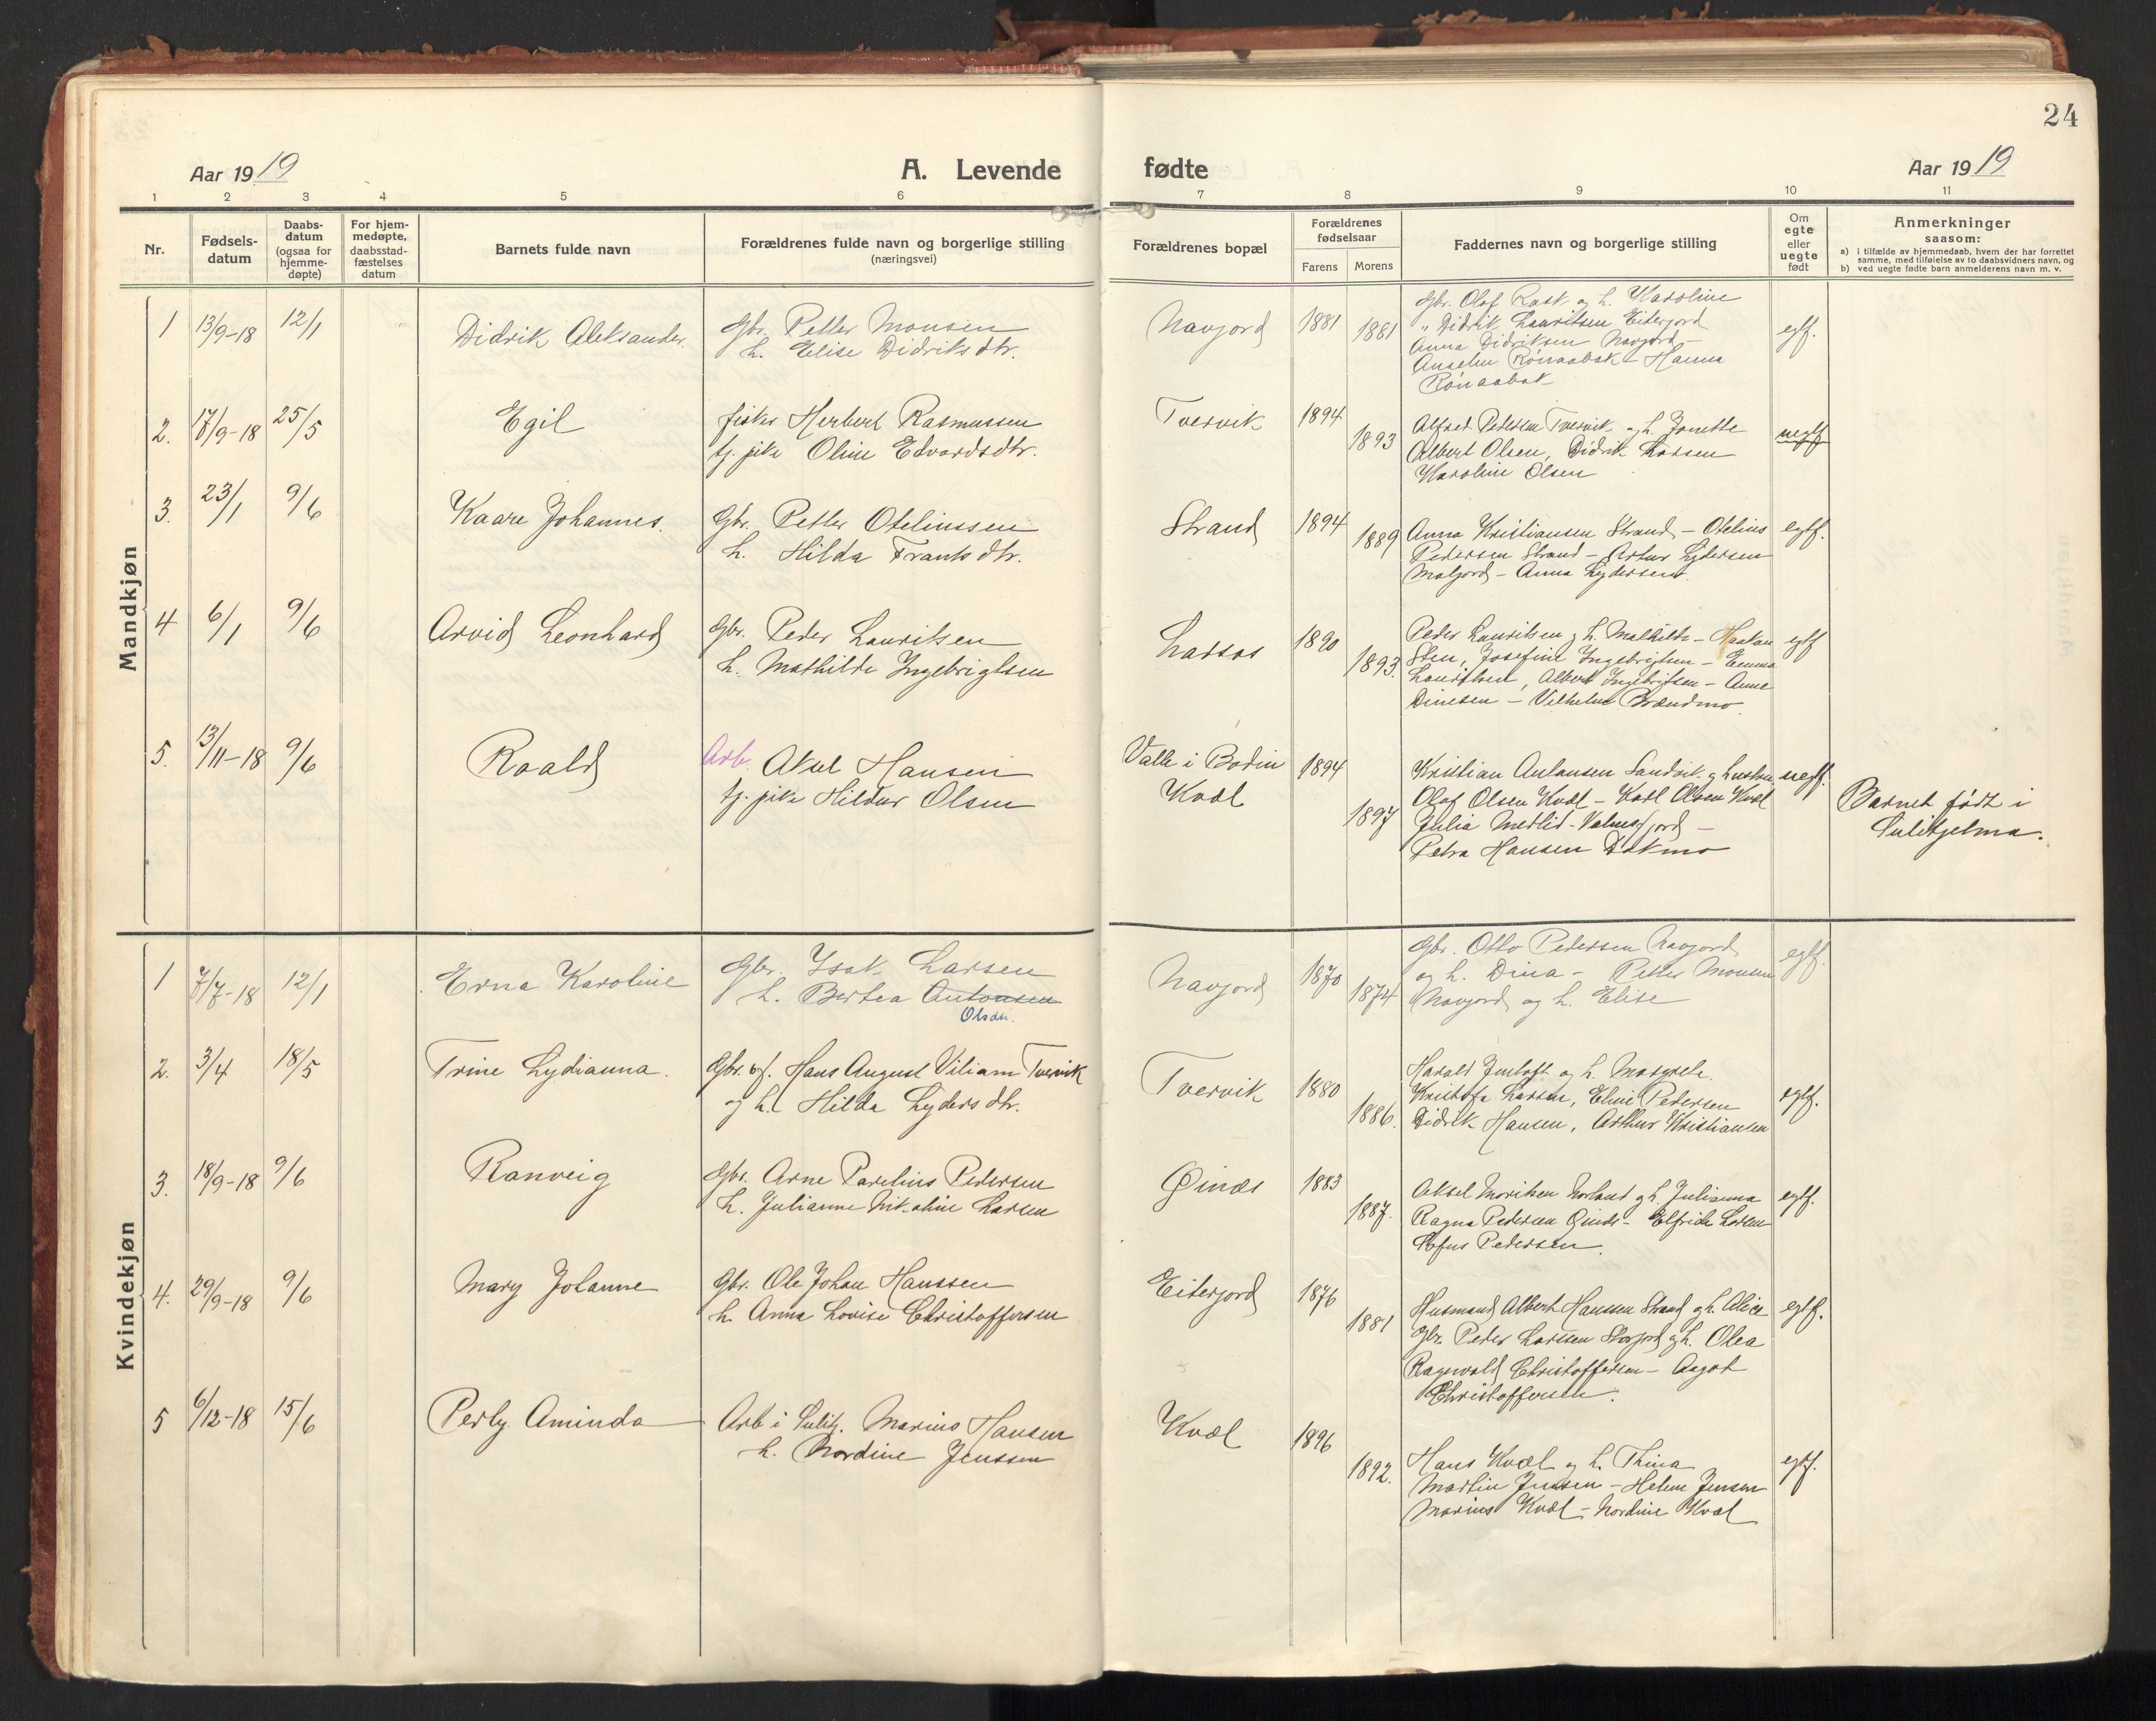 24
Aar 1919
A. Levende
fødte
Aar 1919
1 2 3 4 5 6 7 8 9 10 11
Nr.
Fødsels-
datum
Daabs-
datum
(ogsaa for
hjemme-
døpte)
For hjem-
medøpte,
daabsstad-
fæstelses
datum
Barnets fulde navn
Forældrenes fulde navn og borgerlige stilling
(næringsvei)
Forældrenes bopæl
Forældrenes
fødselsaar
Farens Morens
Faddernes navn og borgerlige stilling
Om
egte
eller
uegte
født
Anmerkninger
saasom:
a) i tilfælde av hjemmedaab, hvem der har forrettet
samme, med tilføielse av to daabsvidners navn, og
b) ved uegte fødte barn anmelderens navn m. v.
Mandkjøn
1 13/9-18 12/1 Didrik Aleksander.
Gbr. Petter Monsen
h. Elise Didriksdtr.
Navjord 1881 1881
Gbr. Olof Rask og h. Karoline
" Didrik Lauritsen Eiterjord
Anna Didriksen Navjord -
Anselm Rönaabak - Hanna
Rönaabak
egtf.
2. 17/9-18 25/5 Egil
fisker Herbert Rasmussen
tj. pike Oline Edvardsdtr.
Tvervik 1894 1893
Alfred Pedersen Tvervik og h. Jonette
Albert Olsen, Didrik Larsen
Karoline Olsen
uegtf
3. 23/1 9/6 Kaare Johannes.
Gbr. Petter Otelinssen
h. Hilda Franksdtr.
Strand 1894 1889
Anna Kristiansen Strand - Otelius
Pedersen Strand - Artur Lydersen
Matjord - Anna Lydersen.
egtf.
4 6/1 9/6 Arvid Leonhard
Gbr. Peder Lauritsen
h. Mathilde Ingebrigtsen
Larsos 1890 1893.
Peder Lauritsen og h. Mathilde - Haakon
Sten, Josefine Ingebrigtsen - Emma
Lauritsen, Albert Ingebritsen - Anne
Dinesen - Vilhelm Brændmo.
egtf
5. 13/11-18 9/6 Roald
Arb. Aksel Hansen
tj. pike Hildur Olsen
Valle i Bodin
Kvæl
1894 1897
Kristian Antonsen Sandvik og hustru
Olaf Olsen Kvæl - Karl Olsen Kvæl
Julia Medlid - Valnesfjord -
Petra Hansen Bakmo
uegtf.
Barnet födt i
Sulitjelma.
Kvindekjøn
1 7/7-18 12/1 Erna Karoline
Gbr. Isak Larsen
h. Bertea Antonsen
Olsen.
Navjord 1870 1874
Gbr. Otto Pedersen Navjord
og h. Dina - Petter Monsen
Navjord og h. Elise
egtf.
2. 3/4 18/5 Trine Lydianna.
Gbr. og f. Hans August Viliam Tvervik
og h. Hilda Lydersdtr.
Tvervik 1880 1886.
Harald Jentoft og h. Margrete
Kristofa Larsen, Eline Pedersen
Didrik Hansen, Arthur Kristiansen
egtf.
3. 18/9-18 9/6 Ranveig
Gbr. Arne Parelius Pedersen
h. Julianne Nikoline Larsen
Øinæs 1883 1887.
Aksel Moritsen Norland og h. Julianna
Ragna Pedersen Øinæs - Elfrida Larsen
Pedersen.
egtf.
4. 29/9-18 9/6 Mary Johanne
Gbr. Ole Johan Hanssen
h. Anna Lovise Christoffersen
Eiterjord 1876 1881
Husmand Albert Hanssen Strand og h. Alice
Gbr. Peder Larssen Storjord og h. Olea
Ragnvald Christoffersen - Aagot
Christoffersen.
egtf.
5 6/12-18 15/6 Perly Aminda
Arb i Sulitj. Marius Hansen
h. Nordine Jenssen
Kvæl 1896 1892.
Hans Kvæl og h. Thina
Martin Jensen - Helene Jensen
Marius Kvæl - Nordine Kvæl
egtf.